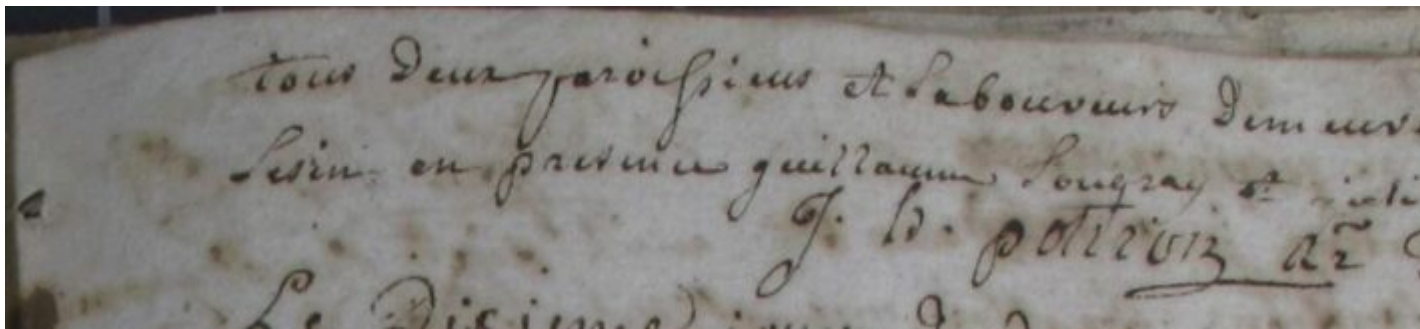 tous deux paroissiens et Laboureurs demeur
en presence guillaume Longray et
J. h. poitivin
Le Disieme jour de